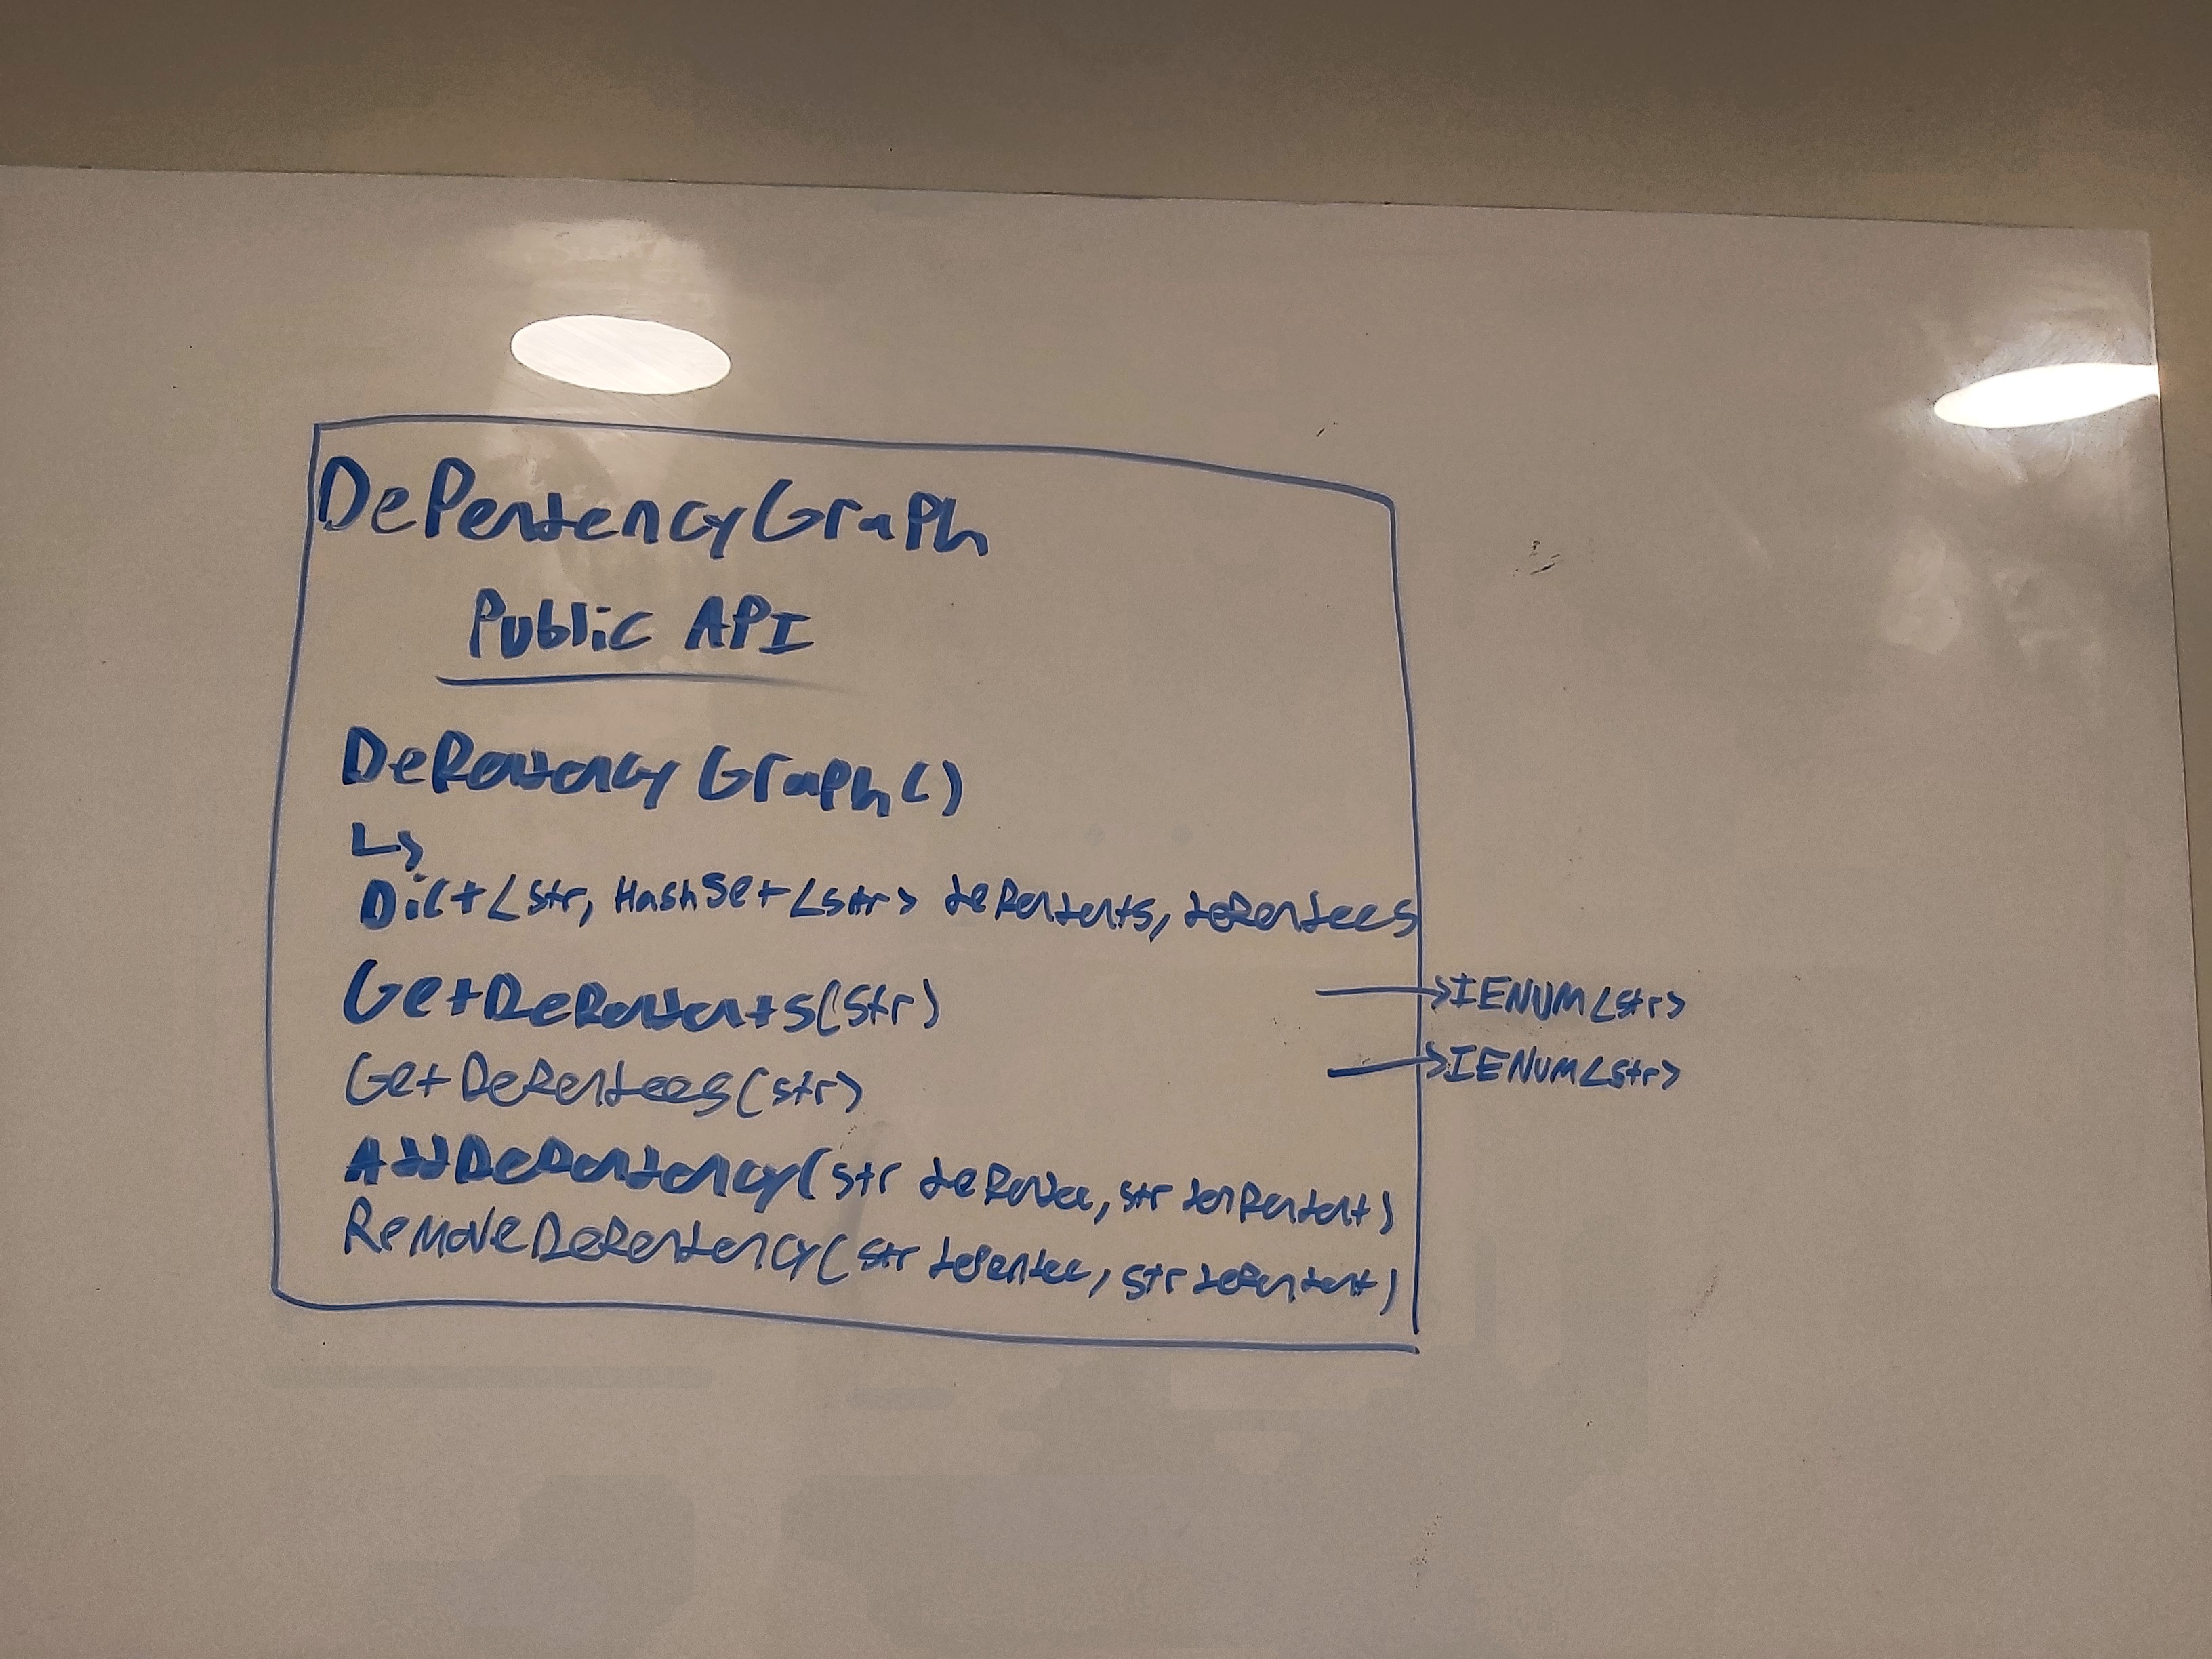 DependencyGraph
Public API
Dependency Graph()
↳
Dict<str, HashSet<str> dependents, dependees
GetDependents(str) →IENUM<str>
GetDependees(str) →IENUM<str>
AddDependency(str dependee, str denpendent)
RemoveDependency(str dependee, str dependent)